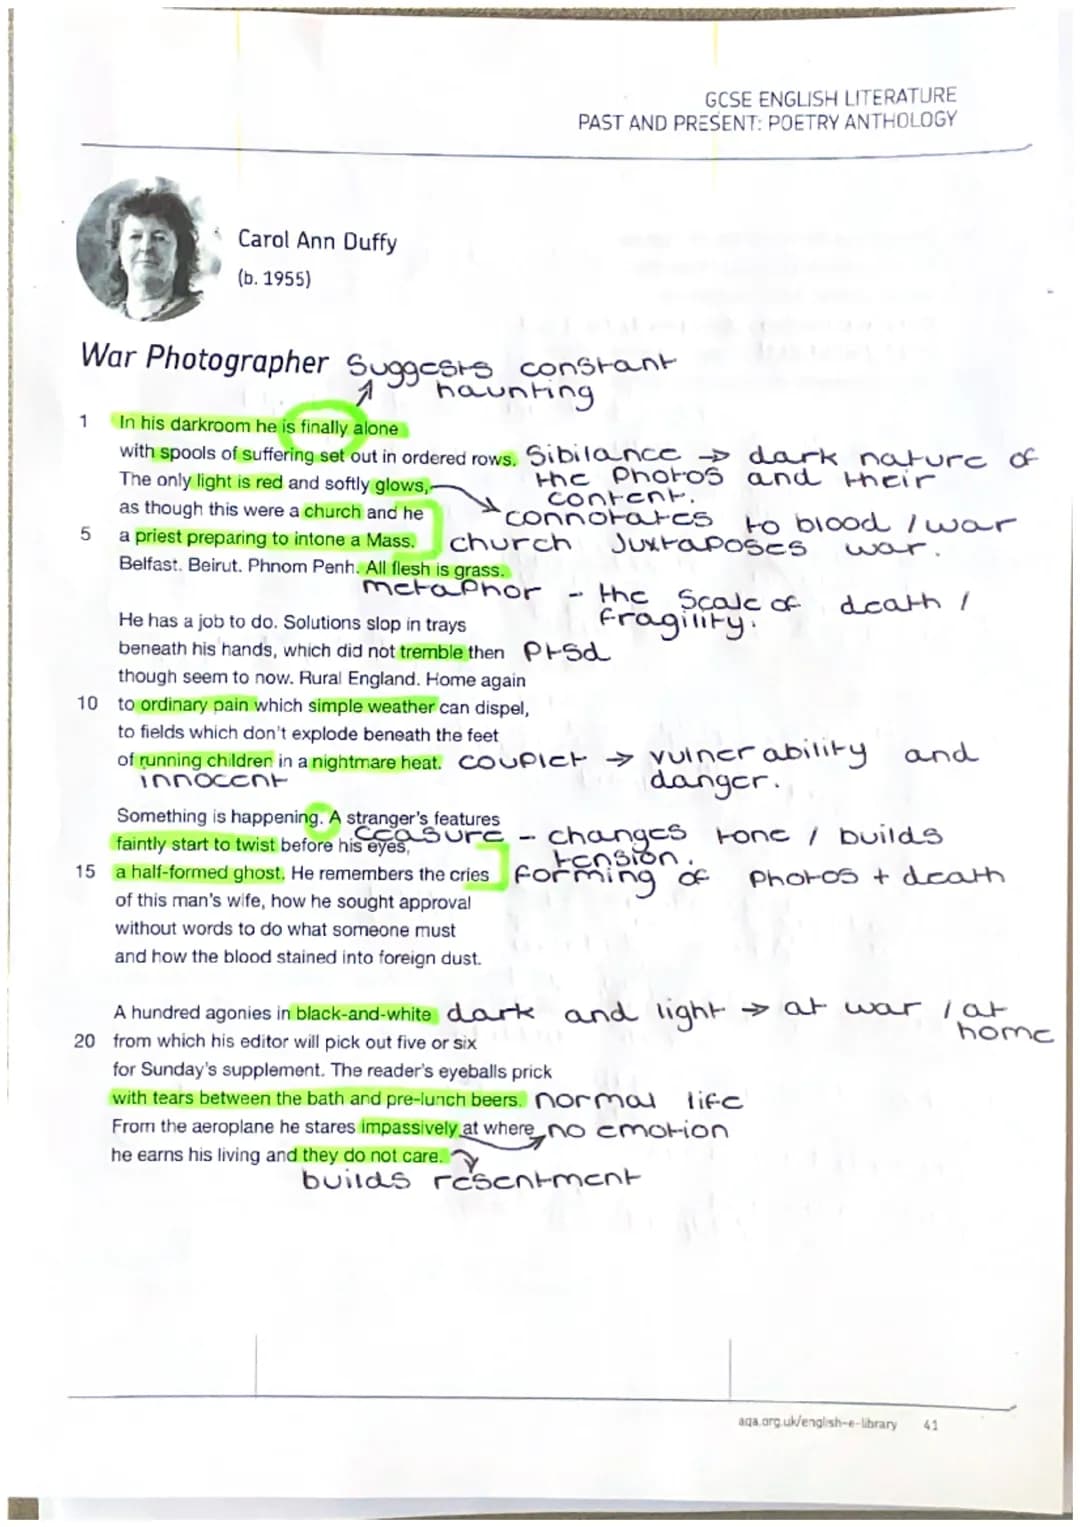 GCSE ENGLISH LITERATURE
PAST AND PRESENT: POETRY ANTHOLOGY
Carol Ann Duffy
(b. 1955)
War Photographer suggests constant
haunting
1 In his darkroom he is finally alone
with spools of suffering set out in ordered rows. Sibilance → dark nature of
the photos and their
content.
The only light is red and softly glows,
connotates to blood / war
as though this were a church and he
5 a priest preparing to intone a Mass. church juxtaposes war.
Belfast. Beirut. Phnom Penh. All flesh is grass.
metaphor - the scale of death /
fragility.
He has a job to do. Solutions slop in trays
beneath his hands, which did not tremble then Ptsd
though seem to now. Rural England. Home again
10 to ordinary pain which simple weather can dispel,
to fields which don't explode beneath the feet
of running children in a nightmare heat. couplet → vulnerability and
danger.
innocent
Something is happening. A stranger's features
ceasure - changes tone / builds
tension.
faintly start to twist before his eyes,
15 a half-formed ghost. He remembers the cries forming of photos + death
of this man's wife, how he sought approval
without words to do what someone must
and how the blood stained into foreign dust.
A hundred agonies in black-and-white dark and light → at war / at
home
20 from which his editor will pick out five or six
for Sunday's supplement. The reader's eyeballs prick
with tears between the bath and pre-lunch beers. normal life
From the aeroplane he stares impassively at where no emotion
he earns his living and they do not care.
builds resentment
aqa.org.uk/english-e-library 41